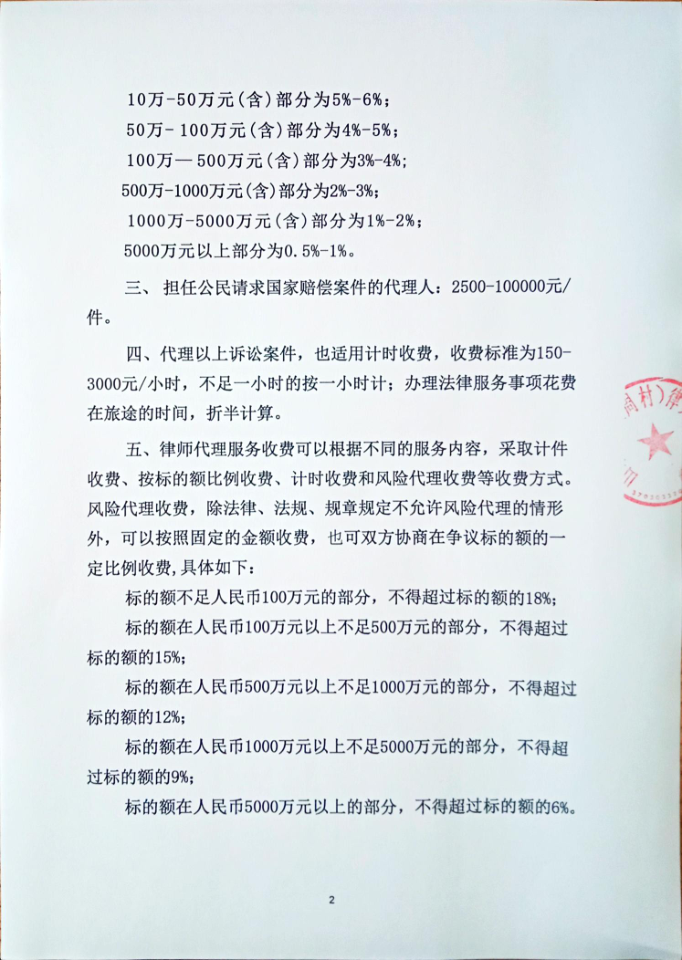 10万-50万元(含)部分为5%-6%；
50万- 100万元(含)部分为4%-5%；
100万— 500万元(含)部分为3%-4%;
500万-1000万元(含)部分为2%-3%；
1000万-5000万元(含)部分为1%-2%；
5000万元以上部分为0.5%-1%。
三、 担任公民请求国家赔偿案件的代理人：2500-100000元/
件。
四、代理以上诉讼案件，也适用计时收费，收费标准为150-
3000元/小时，不足一小时的按一小时计；办理法律服务事项花费
在旅途的时间，折半计算。
五、律师代理服务收费可以根据不同的服务内容，采取计件
收费、按标的额比例收费、计时收费和风险代理收费等收费方式。
风险代理收费，除法律、法规、规章规定不允许风险代理的情形
外，可以按照固定的金额收费，也可双方协商在争议标的额的一
定比例收费,具体如下：
标的额不足人民币100万元的部分，不得超过标的额的18%；
标的额在人民币100万元以上不足500万元的部分，不得超过
标的额的15%；
标的额在人民币500万元以上不足1000万元的部分，不得超过
标的额的12%；
标的额在人民币1000万元以上不足5000万元的部分，不得超
过标的额的9%；
标的额在人民币5000万元以上的部分，不得超过标的额的6%。
村)律
2